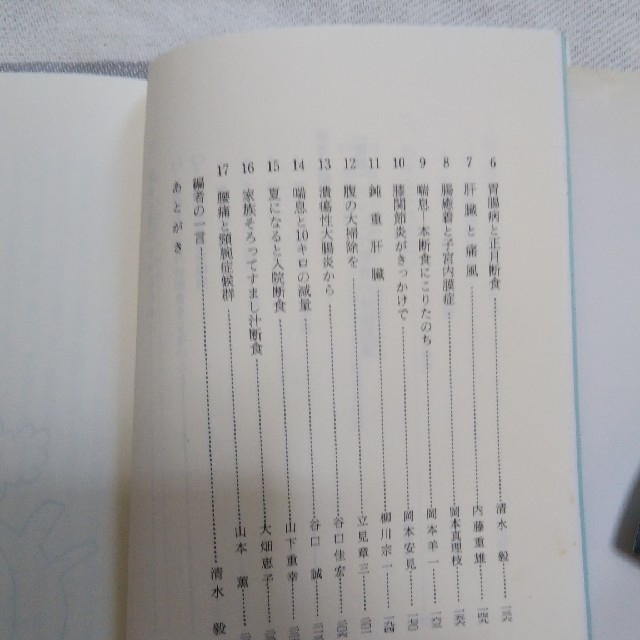 6 胃腸病と正月断食 清水 毅
7 肝臓と痛風 内藤重雄
8 腸癒着と子宮内膜症 岡本真理枝
9 喘息―本断食にこりたのち 岡本羊一
10 膝関節炎がきっかけで 岡本安見
11 鈍重肝臓 柳川宗一
12 腹の大掃除を 立見章三
13 潰瘍性大腸炎から 谷口佳宏
14 喘息と10キロの減量 谷口 誠
15 夏になると入院断食 山下重幸
16 家族そろってすまし汁断食 大畑恵子
17 腰痛と頸腕症候群 山本 薫
編者の一言 清水 毅
あとがき